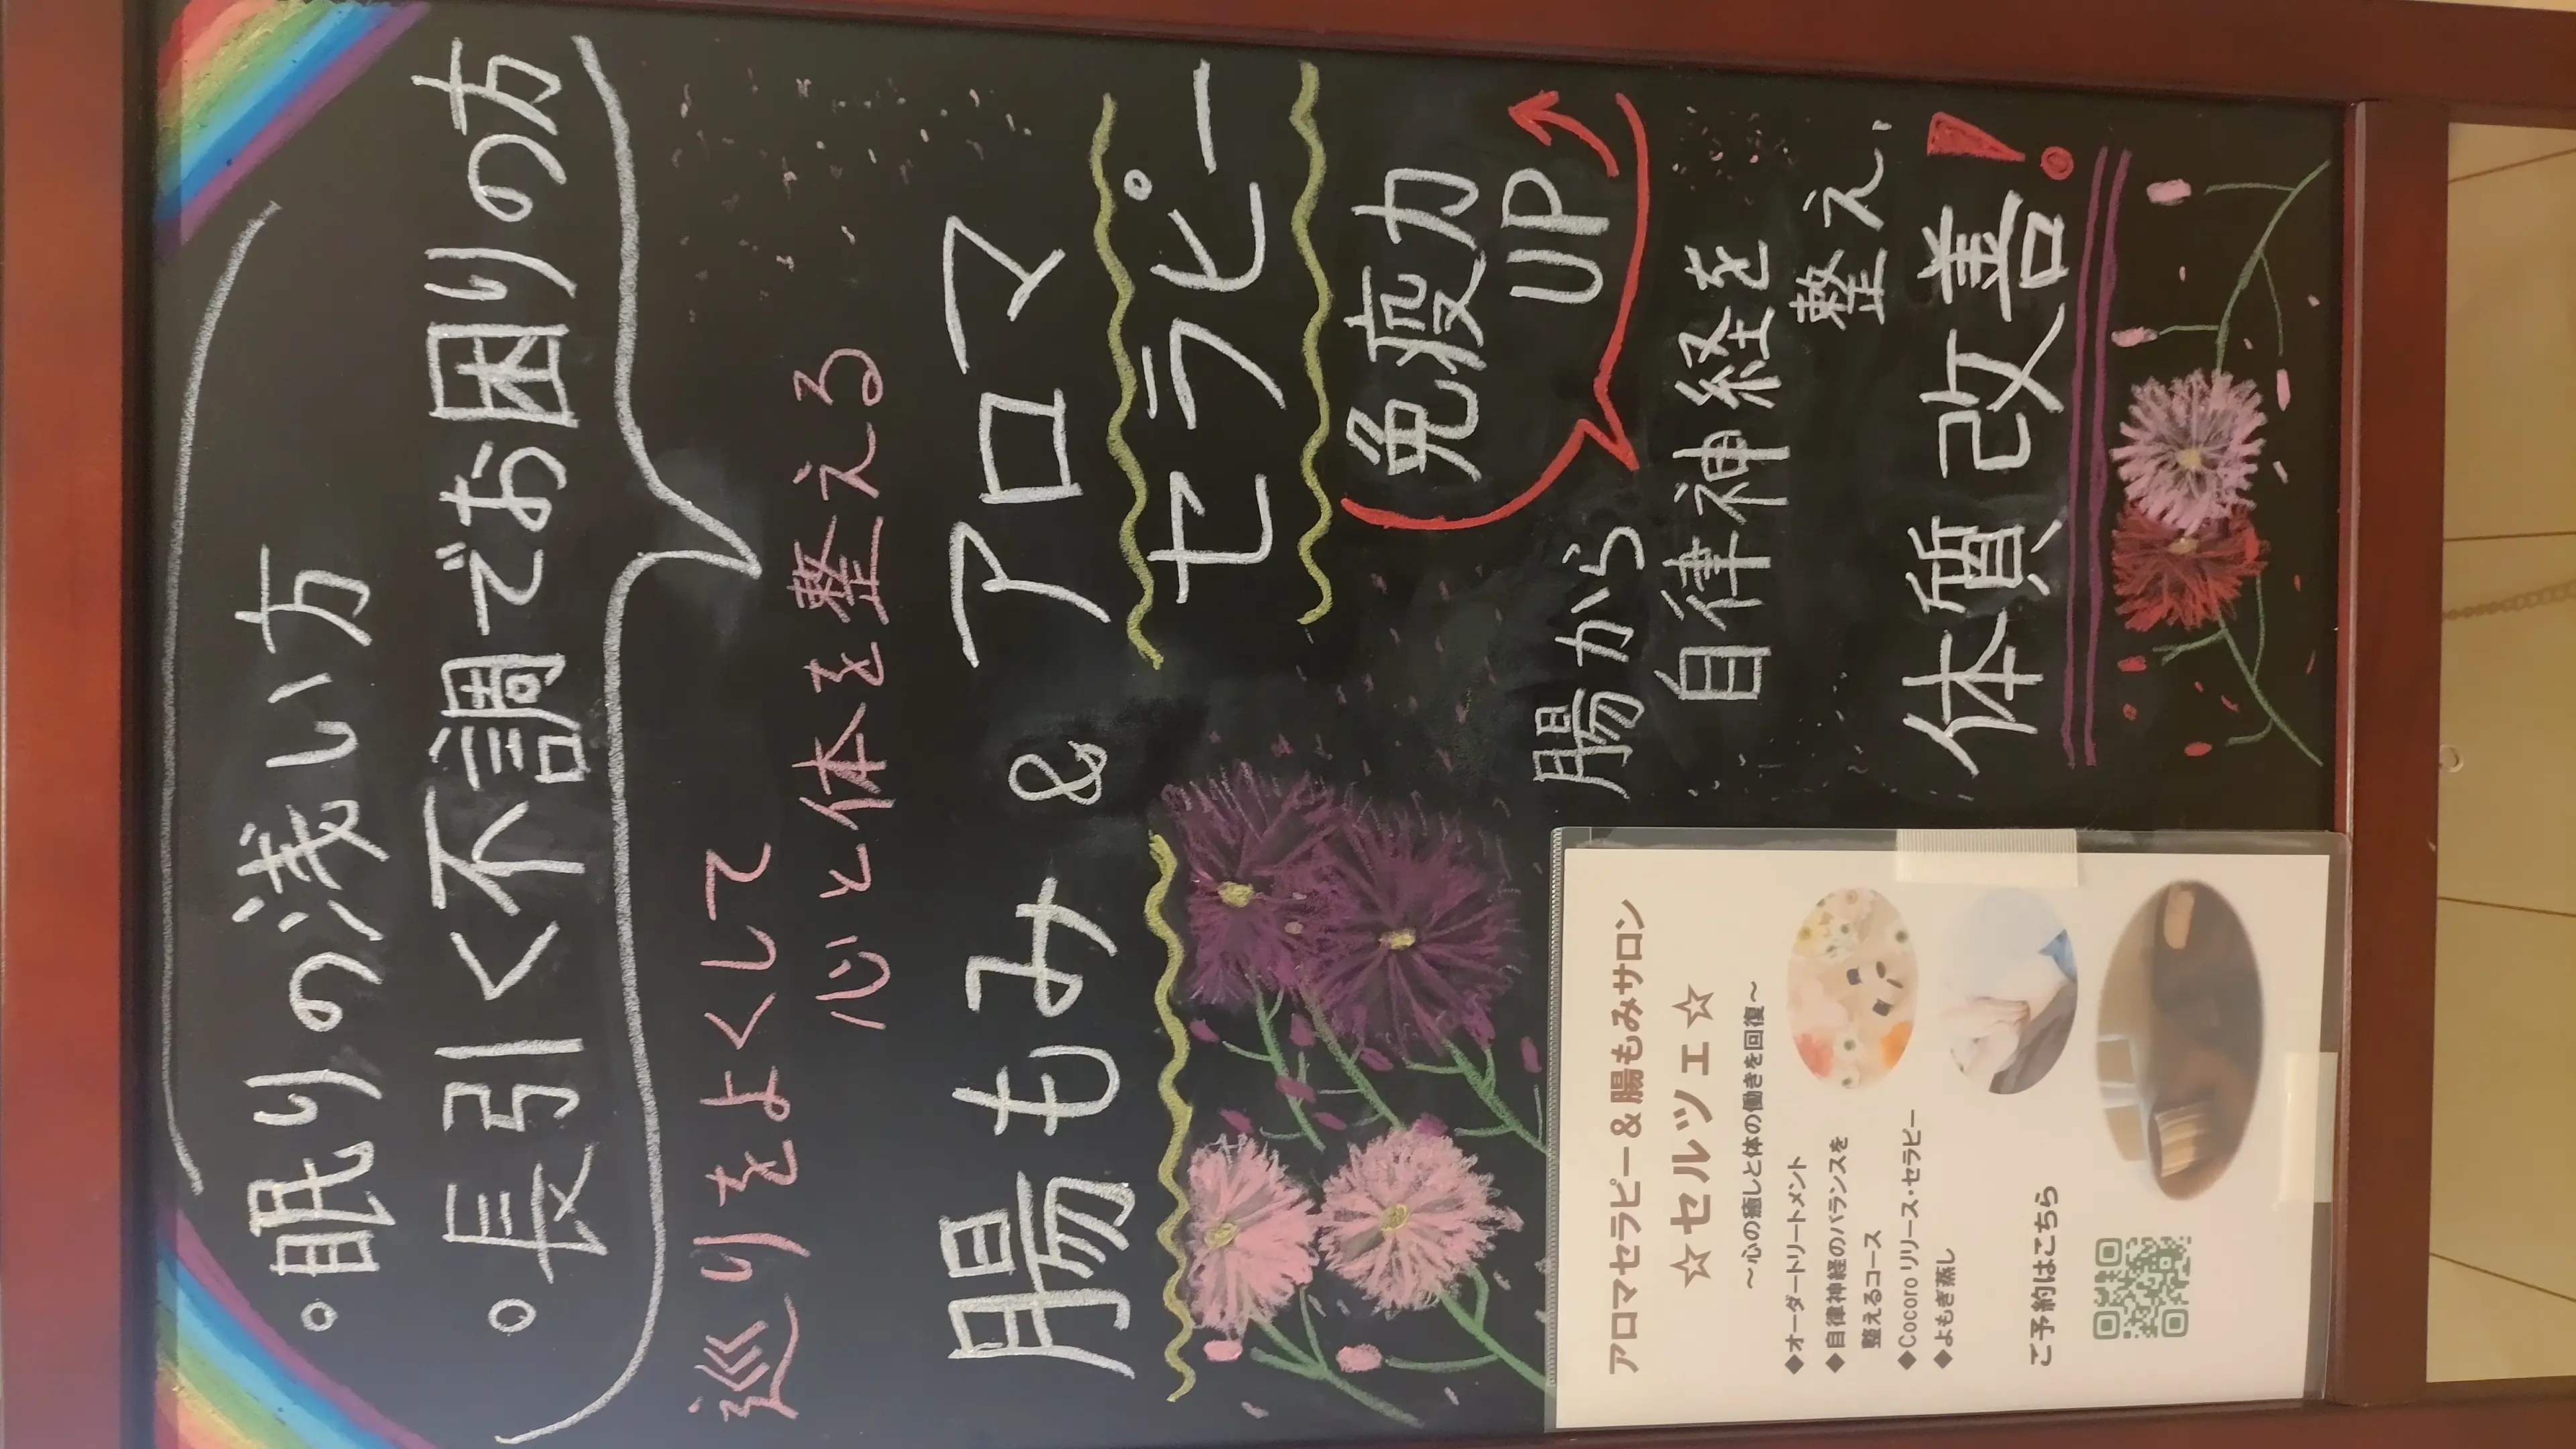 。眠りの浅い方
。長引く不調でお困りの方
巡りをよくして
心と体を整える
腸もみ & アロマ
セラピー
免疫力
UP
腸から
自律神経を
整え、
体質改善!
アロマセラピー&腸もみサロン
☆セルツェ☆
～心の癒しと体の働きを回復～
◆オーダートリートメント
◆自律神経のバランスを
整えるコース
◆Cocoroリリース・セラピー
◆よもぎ蒸し
ご予約はこちら